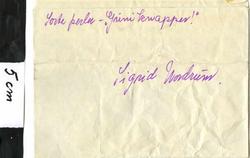 Sorte perler - "Grini knapper!"
Sigrid Nordrum.
5 cm